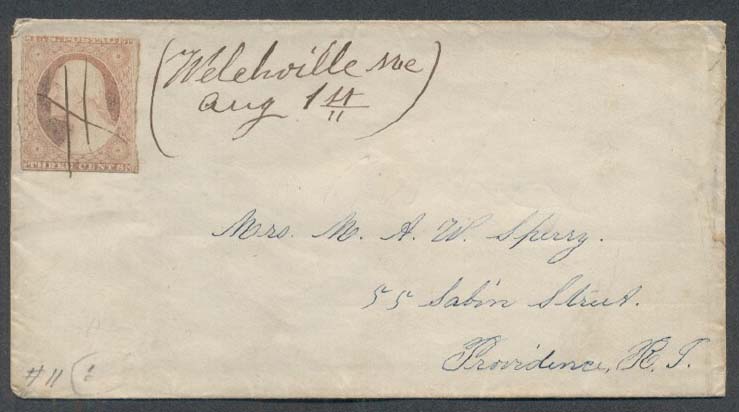 U.S. POSTAGE
THREE CENTS
(Welchville Me)
Aug 1st
Mrs. M. A. W. Sperry.
55 Sabin Street.
Providence, R. I.
#11